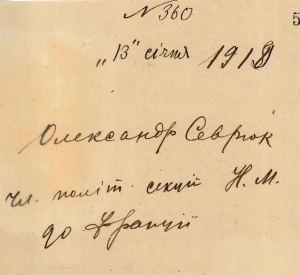 N 360
5
„13" січня 1918
Олександр Севрюк
чл. політ. секції Н. М.
до Франції